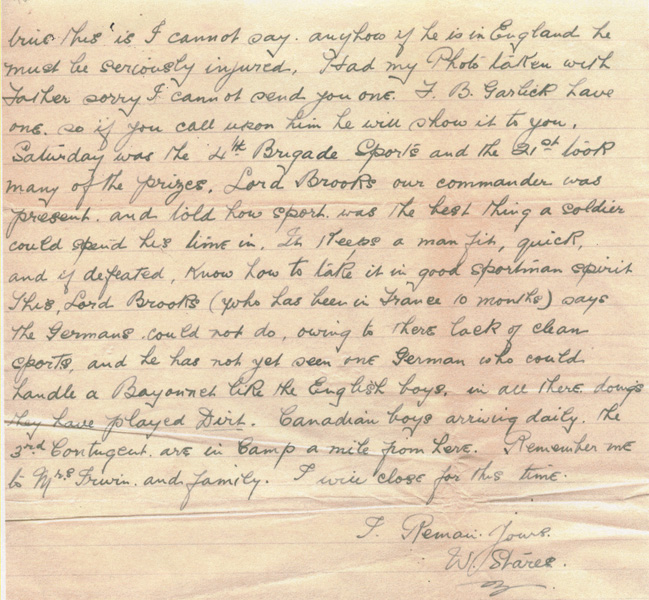 this is I cannot say. anyhow if he is in England he
must be seriously injured. Had my Photo taken with
Father sorry I cannot send you one. F. B. Garlick have
one. so if you call upon him he will show it to you.
Saturday was the 4th Brigade Sports and the 21st took
many of the prizes. Lord Brooks our commander was
present. and told how sport. was the best thing a soldier
could spend his time in. It keeps a man fit, quick,
and if defeated, know how to take it in good sportman spirit
This, Lord Brooks (who has been in France 10 months) says
the Germans. could not do, owing to there lack of clean
sports, and he has not yet seen one German who could
handle a Bayonnet like the English boys, in all there doings
they have played Dirt. Canadian boys arriving daily. the
3rd Contingent. are in Camp a mile from here. Remember me
to Mrs Irwin. and family. I will close for this time.
I. Remain. Yours.
W. Stares.